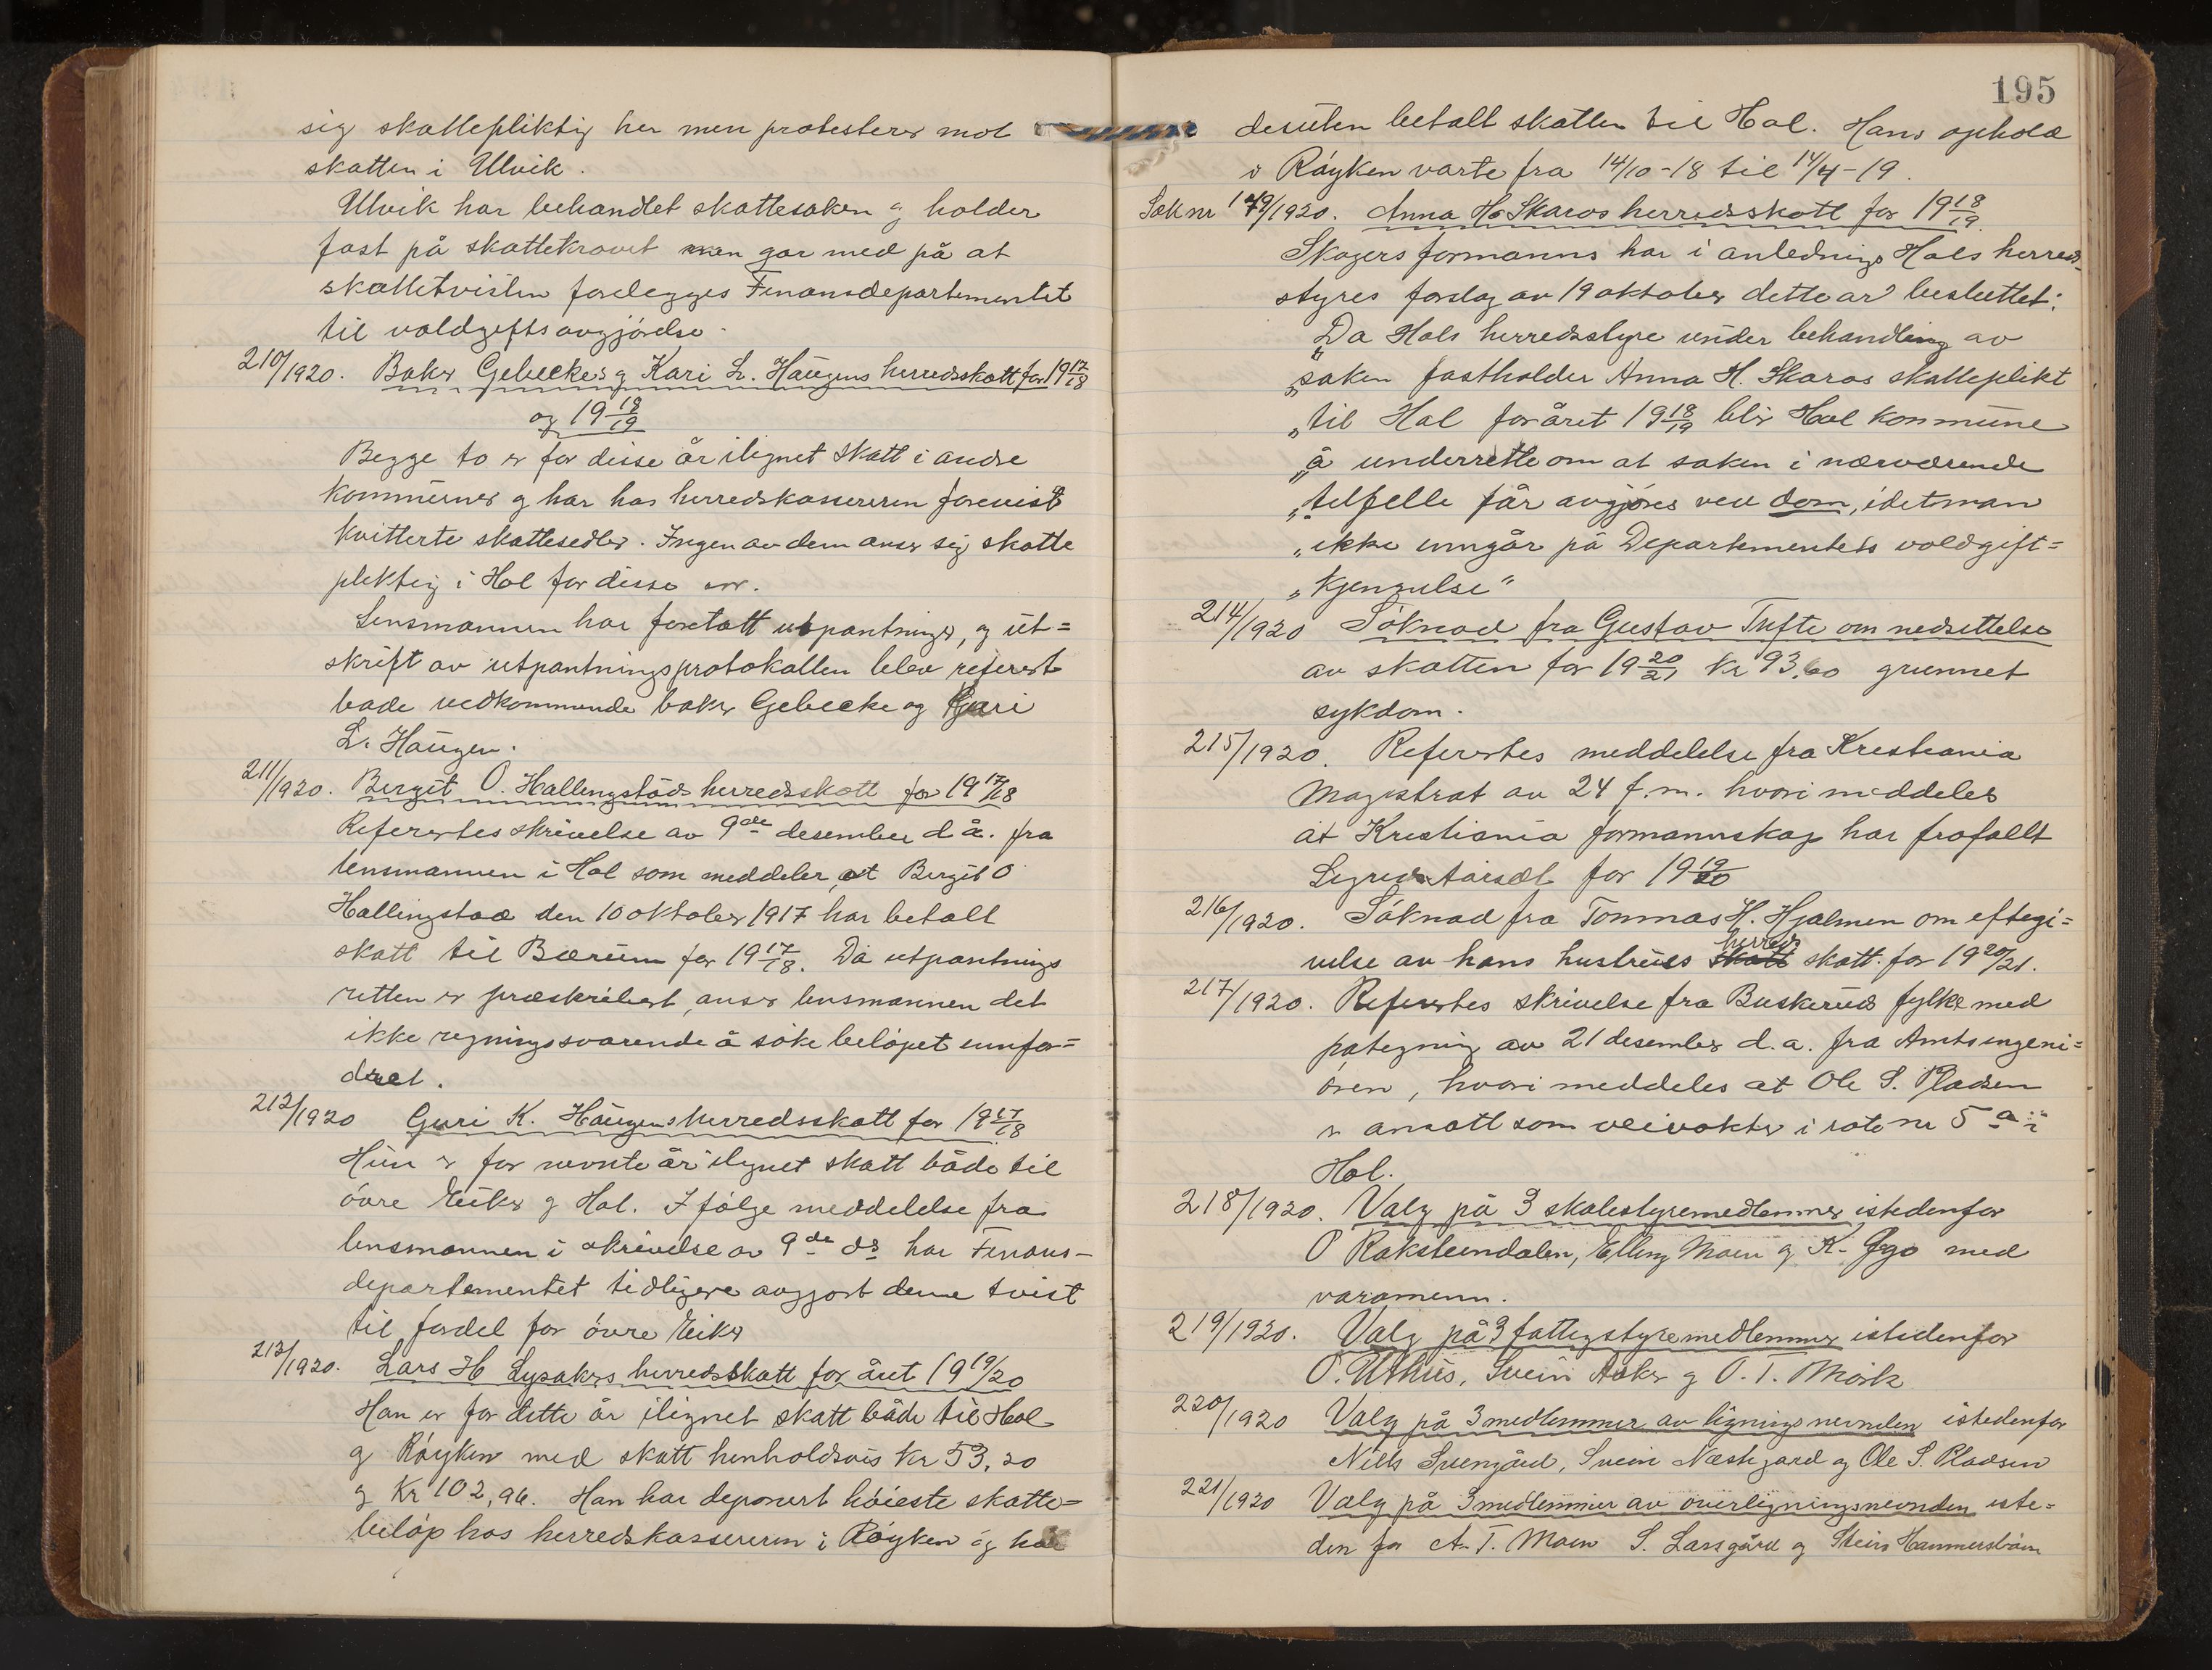 sig skattepliktig her men protesterer mot
skatten i Ulvik.
Ulvik har behandlet skattesaken og holder
fast på skattekravet men gar med på at
skattetvisten forelegges Finansdepartementet
til voldgiftsavgjörelse.
210/1920. Baker Gebeckes og Kari L. Haugens herredsskatt for 19 17/18
og 19 18/19
Begge to er for disse år ilignet skatt i andre
kommuner og har hos herredskassereren forevist
kvitterte skattesedler. Ingen av dem anser sig skatte
pliktig i Hol for disse
Lensmannen har foretatt utpantninger, og ut=
skrift av utpantningsprotokollen blev referert
bade vedkommende baker Gebecke og Kari
L. Haugen.
211/1920. Bergit O. Hallingstads herredsskatt for 19 17/18
Refertes skrivelse av 9de desember d å. fra
lensmannen i Hol som meddeler, at Bergit O
Hallingstad den 10 oktober 1917 har betalt
skatt til Bærum for 19 17/18. Da utpantnings
retten er præskribert, anser lensmannen det
ikke regningssvarende å söke belöpet innfor=
dret.
212/1920 Guri K. Haugens herredsskatt for 19 17/18
Hun er for nevnte år ilignet skatt både til
övre Eiker og Hol. I fölge meddelelse fra
lensmannen i skrivelse av 9de ds har Finans-
departementet tidligere avgjort denne tvist
til fordel for övre Eiker
213/1920. Lars H Lysakers herredsskatt for året 19 19/20
Han er for dette år ilignet skatt både til Hol
og Röyken med skatt henholdsvis kr 53,20
og Kr 102,96. Han har deponert höieste skatte=
belöp hos herredskassereren i Röyken og har
195
desuten betalt skatten til Hol. Hans ophold
i Röyken varte fra 14/10-18 til 14/4-19.
Sak nr 149/1920. Anna H. Skaros herredsskatt for 19 18/19.
Skogers formanns har i anledning Hols herreds=
styres forslag av 19 oktober dette ar besluttet:
"Da Hols herredsstyre under behandling av
"saken fastholder Anna H. Skaros skatteplikt
"til Hol for året 19 18/19 blir Hol kommune
"å underrette om at saken i nærværende
"tilfelle får avgjöres ved dom, idet man
"ikke inngår på Departementets voldgift=
"kjennelse"
214/1920 Söknad fra Gustav Tufte om nedsettelse
av skatten for 19 20/21 kr 93,60 grunnet
sykdom.
215/1920. Refertes meddelelse fra Kristiania
Magistrat av 24 f.m. hvori meddeles
at Kristiania formannskap har frafallt
for 19 19/20
216/1920. Söknad fra Tommas H. Hjalmen om eftegi=
velse av hans hustrues herreds skatt. for 19 20/21.
217/1920. Refertes skrivelse fra Buskeruds fylke med
pategning av 21 desember d.a. fra Amtsingeni=
ören, hvori meddeles at Ole S. Pladsen
er ansatt som veivokter i rote nr 5 a i
Hol.
218/1920. Valg på 3 skolestyremedlemmer istedenfor
O Rakstendalen, Elling Moen og K. med
varamenn.
219/1920. Valg på 3 fattigstyremedlemmer istedenfor
O. Uthus, Svein Aaker og O. T. Mörk
220/1920 Valg på 3 medlemmer av ligningsnevnden istedenfor
Nils Svengård, Svein Næstegard og Ole S. Pladsen
221/1920 Valg på 3 medlemmer av overligningsnevnden iste=
den for A. T. Moen S. Larsgård og Stein Hammersböen